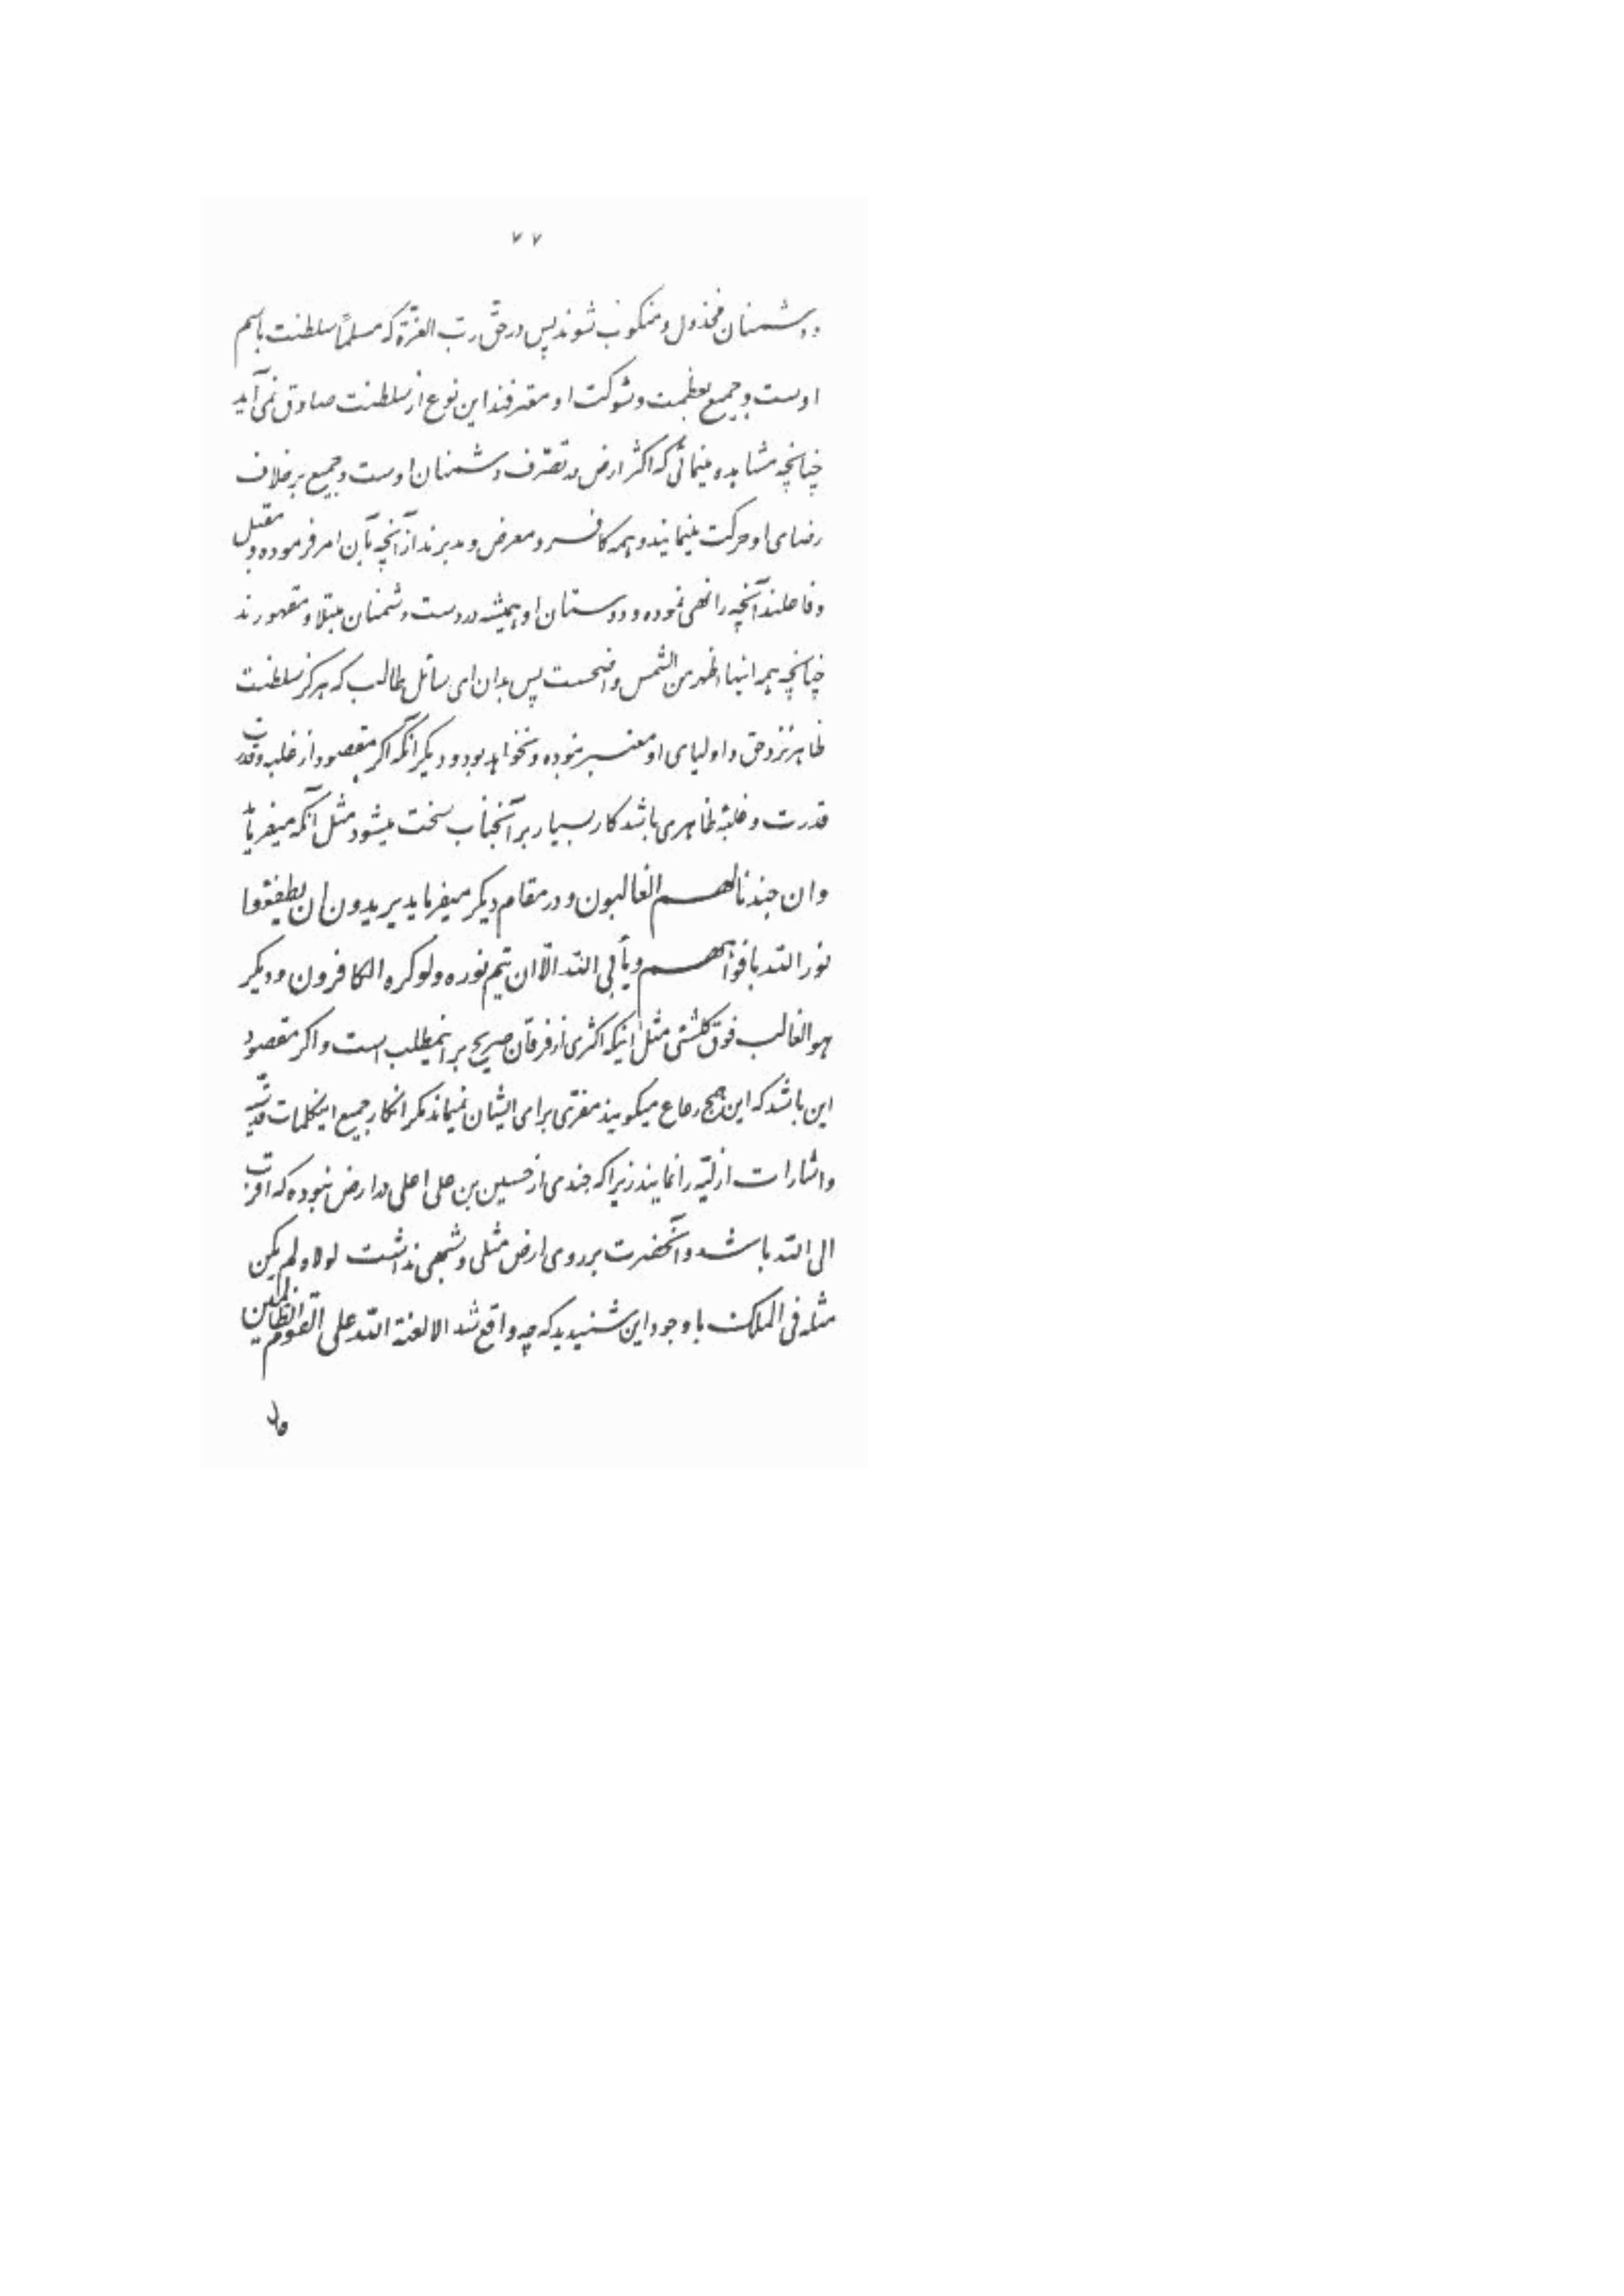 ۷۷
و دشمنان مخذول و منکوب شوند پس در حقّ ربّ العزّة که مسلّماً سلطنت باسم
اوست و جمیع بعظمت و شوکت او معترفند این نوع از سلطنت صادق نمی‌آید
چنانچه مشاهده مینمائی که اکثر ارض در تصرّف دشمنان اوست و جمیع بر خلاف
رضای او حرکت مینمایند و همه کافر و معرض و مدبرند از آنچه بآن امر فرموده و مقبل
و فاعلند آنچه را نهی نموده و دوستان او همیشه در دست دشمنان مبتلا و مقهورند
چنانچه همه اینها اظهر من الشمس واضحست پس بدان ای سائل طالب که هرگز سلطنت
ظاهر نزد حق و اولیای او معتبر نبوده و نخواهد بود و دیگر آنکه اگر مقصود از غلبه و قدرت
قدرت و غلبهٔ ظاهری باشد کار بسیار بر آنجناب سخت میشود مثل آنکه میفرماید
و ان جندنا لهم الغالبون و در مقام دیگر میفرماید یریدون ان یطفئوا
نور الله بافواههم و یأبی الله الّا ان یتم نوره و لو کره الکافرون و دیگر
هو الغالب فوق کلشئ مثل اینکه اکثری از فرقان صریح بر اینمطلب است و اگر مقصود
این باشد که این همج رعاع میگویند مفرّی برای ایشان نمیماند مگر انکار جمیع اینکلمات قدسیّه
و اشارات ازلیّه را نمایند زیرا که جندی از حسین بن علی اعلی در ارض نبوده که اقرب
الی الله باشد و آنحضرت بر روی ارض مثلی و شبهی نداشت لولاه لم یکن
مثله فی الملک با وجود این شنیدید که چه واقع شد الا لعنة الله علی القوم الظّالمین